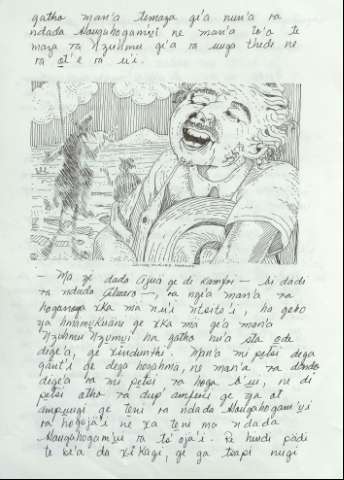 gatho man'a temaga gi'a nun'a ra
ndada Haugahogamuyi ne man'a to'a te
maxa ra Nzunmu gi'a ra uuga thedi ne
ra ot'e ra u'i.
— Ma zi dada Ajua ge di kamfri — bi dadi
ra ndada Alvaro —, ra ngi'a man'a ra
hoganoya xka ma nu'i ntsits'i, ha gebo
ya hnamykuänu ge xka ma ge'a man'a
Nzunmu Nzumyi ha gatho nu'a sta ode
dige'a, ge xindunthi. Man'a mi petsi dega
gaut'i ge dega hogahma, ne man'a ra dondo
dige'a ra mi petsi ra hoga b'ui, ne di
petsi atho ra dup' amfeni ge ya al
ampuugi ge teni ra ndada Haugahogam'yi
ra hogoja'i ne xa teni ma ndada
Haugahogam'yi ra ts'oja'i. Pe hindi pädi
te bi'a da xikagi, ge ga tsapi nugi